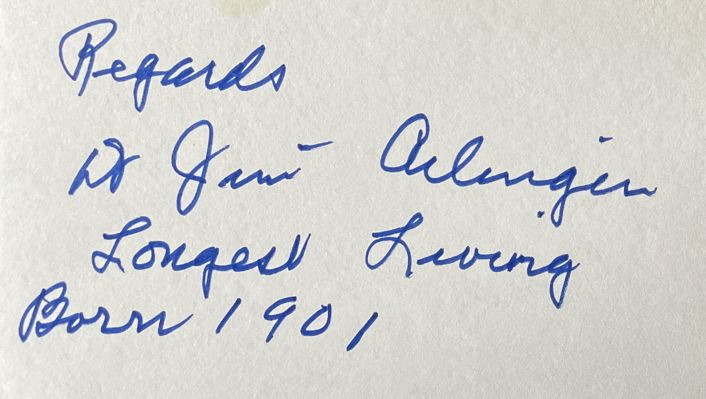 Regards
Dr Jim Arlingen
Longest Living
Born 1901